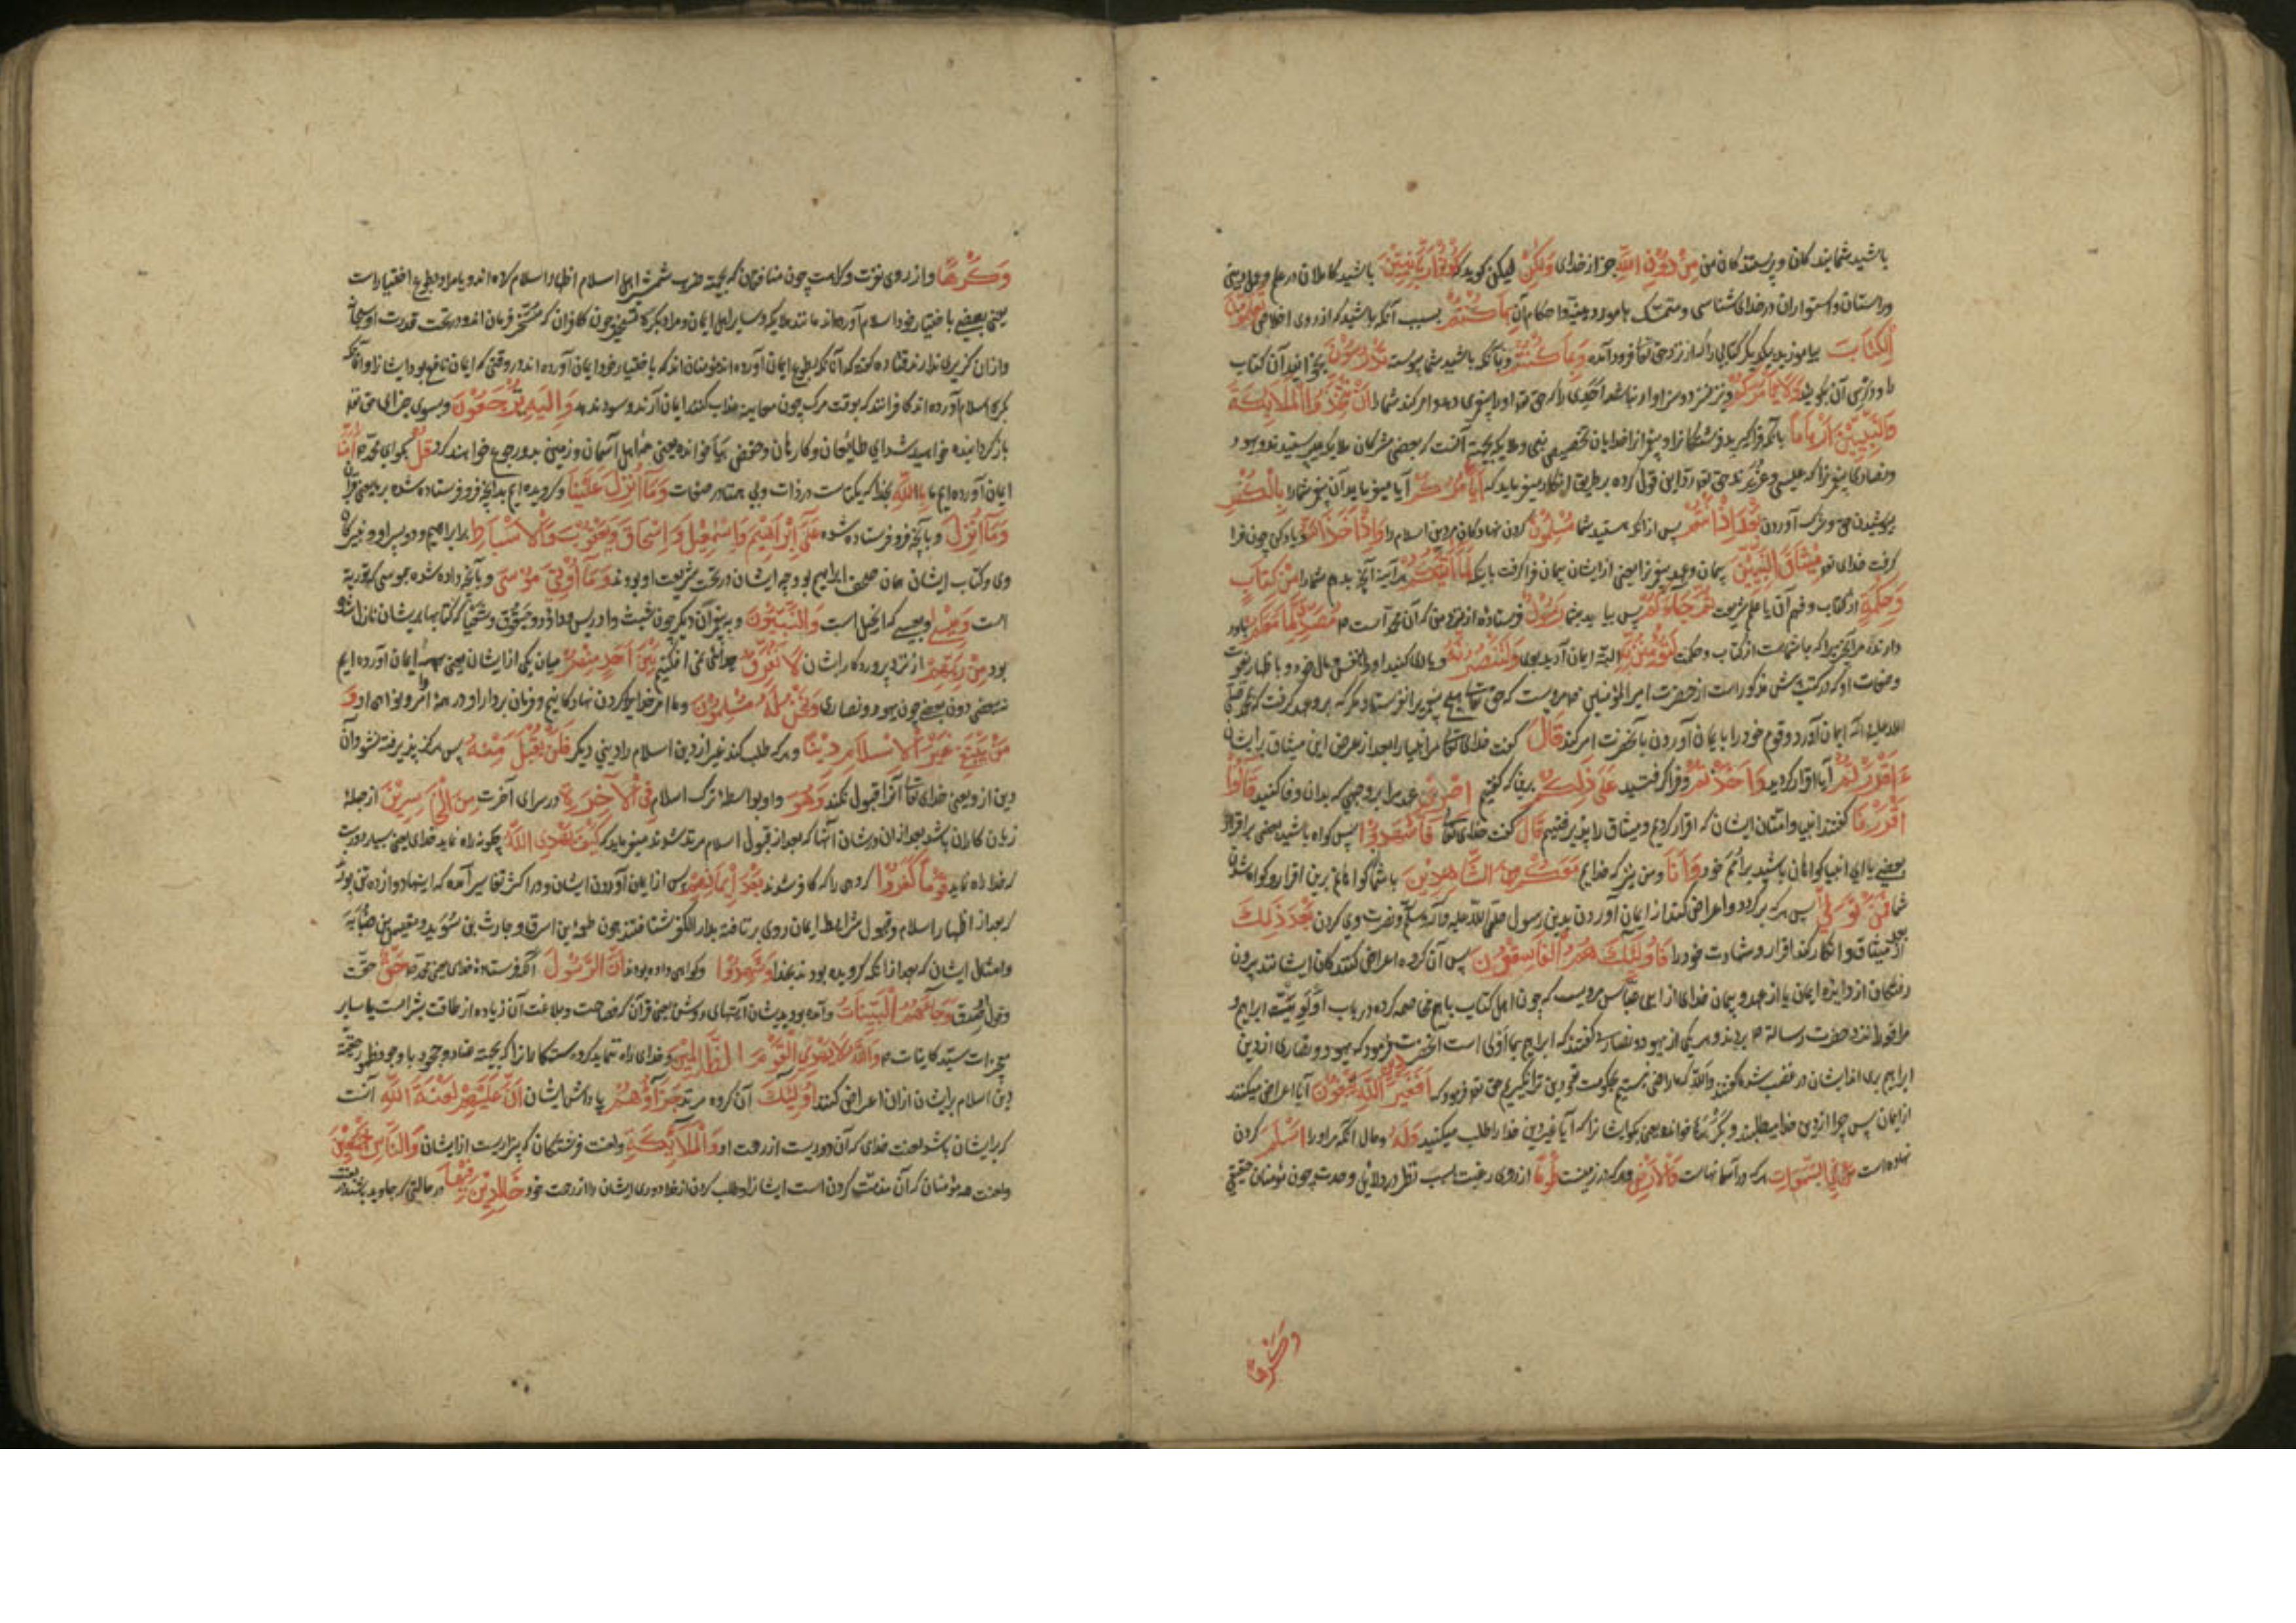 باشید شمایند کان و پرستند کان من مِنْ دُوْنِ اللّٰهِ جز از خدای وَلٰكِنْ لیکن کوید كُوْنُوْا رَبَّانِيّٖنَ باشید کاملان در علم و عمل و دینی
وراستان و استواران در خدای شناسی و متمسک باموردینیه و احکام آن بِمَا كُنْتُمْ بسبب آنکه باشید که از روی اخلاص تُعَلِّمُوْنَ
الْكِتَابَ بیاموزید بیکدیگر کتابی را که از نزد حق تعا فرود آمده وَبِمَا كُنْتُمْ و بآنکه باشید شما پیوسته تَدْرُسُوْنَ بخوانید آن کتاب
وَلَا يَاْمُرَكُمْ و نیز سزاوار نباشد احدی را که حق تعه او را پیغمبری دهد و امر کند شما را اَنْ تَتَّخِذُوا الْمَلَائِكَةَ
وَالنَّبِيّٖنَ اَرْبَابًا بآنکه فرا گیرید فرشتگانرا و پیغمبرانرا خدایان تخصیص نبی و ملایکه بجهة آنست که بعضی مشرکان ملایکه می پرستیدند و یهود
و نصاری پیغمبرانرا که عیسی و عزیرند حق تعه رد این قول کرده بر طریق انکار میفرماید که اَيَاْمُرُكُمْ آیا میفرماید آن پیغمبر شما را بِالْكُفْرِ
بپوشیدن حق و شرک آوردن بَعْدَ اِذْ اَنْتُمْ پس از آنکه هستید شما مُسْلِمُوْنَ کردن نهادکان مر دین اسلام را وَاِذْ اَخَذَ اللّٰهُ و یاد کن چون فرا
کرفت خدای تعه مِيْثَاقَ النَّبِيّٖنَ پیمان و عهد پیغمبرانرا یعنی از ایشان پیمان فرا کرفت باینکه لَمَا اٰتَيْتُكُمْ هر آینه آنچه بدهم شما را مِنْ كِتَابٍ
وَحِكْمَةٍ از کتاب و فهم آن یا علم شریعت ثُمَّ جَاءَكُمْ پس بیاید بشما رَسُوْلٌ فرستاده از نزد من که آن محمد است ص مُصَدِّقٌ لِمَا مَعَكُمْ باور
دارنده مر آنچیزی را که با شماست از کتاب و حکمت لَتُؤْمِنُنَّ بِهٖ البته ایمان آرید بوی وَلَتَنْصُرُنَّهٗ و یاری کنید او را بنفس و مال خود و باظهار نعوت
و صفات او که در کتب پیش مذکور است از حضرت امیر المؤمنین مرویست که حق تعا هیچ پیغمبر را نفرستاد مکر که بر وعهد کرفت که بمحمد صلی
الله علیه و آله ایمان آورد و قوم خود را بایمان آوردن بآنحضرت امر کند قَالَ کفت خدای تعا مر انبیا را بعد از عرض این میثاق بر ایشان
ءَاَقْرَرْتُمْ آیا اقرار کردید وَاَخَذْتُمْ و فرا کرفتید عَلٰى ذٰلِكُمْ برینکه کفتم اِصْرِىْ عهد مرا بر وجهی که بدان وفا کنید قَالُوْا
اَقْرَرْنَا کفتند انبیا و امتان ایشان که اقرار کردیم و میثاق را پذیرفتیم قَالَ کفت خدای تعا فَاشْهَدُوْا پس کواه باشید بعضی بر اقرار
بعضی یا ای انبیا کواهان باشید بر امم خود وَاَنَا و من نیز که خدایم مَعَكُمْ مِنَ الشَّاهِدِيْنَ با شما کواهانم برین اقرار و کواه شدن
شما فَمَنْ تَوَلّٰى پس هر که بر کردد و اعراض کند از ایمان آوردن بدین رسول صلی الله علیه و آله وسلم و نصرت وی کردن بَعْدَ ذٰلِكَ
بعد از میثاق و انکار کند اقرار و شهادت خود را فَاُولٰئِكَ هُمُ الْفَاسِقُوْنَ پس آن کروه اعراض کنندکان ایشانند بیرون
رفتکان از دایره ایمان یا از عهد و پیمان خدای از ابن عباس مرویست که چون اهل کتاب با هم مخاصمه کرده در باب اولویت ابراهیم
مرافعه بنزد حضرت رسالة ص بردند و هر یکی از یهود و نصاری کفتند که ابراهیم بما اولی است آنحضرت فرمود که یهود و نصاری از دین
ابراهیم بری اند ایشان در غضب شده کفتند والله که ما راضی نیستیم بحکومت تو و دین ترا نکیریم حق تعه فرمود که اَفَغَيْرَ دِيْنِ اللّٰهِ يَبْغُوْنَ آیا اعراض میکنند
از ایمان پس جز از دین خدا میطلبند و بکر خوانده یعنی بکو ایشانرا که آیا غیر دین خدا را طلب میکنید وَلَهٗ و حال آنکه مر او را اَسْلَمَ کردن
نهاده است مَنْ فِى السَّمٰوَاتِ هر که در آسمانهاست وَالْاَرْضِ و هر که در زمینست طَوْعًا از روی رغبت بسبب نظر در دلایل وحدت چون مؤمنان حقیقی
وکرها
وَكَرْهًا و از روی نفرت و کراهت چون منافقان که بجهة ضرب شمشیر اهل اسلام اظهار اسلام کرده اند و یا مراد بطوع اختیار است
یعنی بعضی باختیار خود اسلام آورده اند مانند ملایکه و سایر اهل ایمان و مراد بکره تسخیر چون کافران که مسخر فرمان اند و در تحت قدرت او سبحانه
و از آن کزیری ندارند قتاده کفته که آنانکه بطوع ایمان آورده اند مؤمنان اند که باختیار خود ایمان آورده اند در وقتی که ایمان نافع بود ایشانرا و آنانکه
بکره اسلام آورده اند کافرانند که بوقت مرک چون معاینه عذاب کنند ایمان آرند و سود ندهد وَاِلَيْهِ يُرْجَعُوْنَ و بسوی جزای حق تعه
باز کردانیده خواهید شد ای طائعان و کارهان و حفص بیا خوانده یعنی همه اهل آسمان و زمین بدو رجوع خواهند کرد قُلْ بکو ای محمد ص اٰمَنَّا
ایمان آورده ایم ما بِاللّٰهِ بخدا که یکتاست در ذات و بی همتا در صفات وَمَا اُنْزِلَ عَلَيْنَا و کرویده ایم بدانچه فرو فرستاده شده بر ما یعنی قرآن
وَمَا اُنْزِلَ و بآنچه فرو فرستاده شده عَلٰى اِبْرَاهِيْمَ وَاِسْمٰعِيْلَ وَاِسْحَاقَ وَيَعْقُوْبَ وَالْاَسْبَاطِ بر ابراهیم و دو پسر او و نبیرکان
وی و کتاب ایشان همان صحف ابراهیم بود چه ایشان در تحت شریعت او بودند وَمَا اُوْتِىَ مُوْسٰى و بآنچه داده شده بموسی که توریة
است وَعِيْسٰى و بعیسی که انجیل است وَالنَّبِيُّوْنَ و پیغمبران دیکر چون شیث و ادریس و داود و حبقوق و شعیا که کتابها بدیشان نازل شده
بود مِنْ رَبِّهِمْ از نزد پروردکار ایشان لَا نُفَرِّقُ جدائی نمی افکنیم بَيْنَ اَحَدٍ مِنْهُمْ میان یکی از ایشان یعنی بهمه ایمان آورده ایم
نه بعضی دون بعضی چون یهود و نصاری وَنَحْنُ لَهٗ مُسْلِمُوْنَ و ما مر خدایرا کردن نهادکانیم و فرمان بردار او در همه اوامر و نواهی او وَ
مَنْ يَبْتَغِ غَيْرَ الْاِسْلَامِ دِيْنًا و هر که طلب کند غیر از دین اسلام را دینی دیکر فَلَنْ يُقْبَلَ مِنْهُ پس هرکز پذیرفته نشود آن
دین ازو یعنی خدای تعا آنرا قبول نکند وَهُوَ و او بواسطه ترک اسلام فِى الْاٰخِرَةِ در سرای آخرت مِنَ الْخَاسِرِيْنَ از جمله
زیان کاران باشد بعد از آن در شان آنها که بعد از قبول اسلام مرتد شوند میفرماید که كَيْفَ يَهْدِى اللّٰهُ چکونه راه نماید خدای یعنی بسیار دور است
که خدا راه نماید قَوْمًا كَفَرُوْا کروهی را که کافر شوند بَعْدَ اِيْمَانِهِمْ پس از ایمان آوردن ایشان و در اکثر تفاسیر آمده که اینها دوازده تن بودند
که بعد از اظهار اسلام و قبول شرایط ایمان روی برتافته بدار الکفر شتافتند چون طعمة ابن ابیرق و حارث بن سُوَید و مقیس بن صُبابة
و امثال ایشان که بعد از آنکه کرویده بودند بخدا وَشَهِدُوْا و کواهی داده بودند اَنَّ الرَّسُوْلَ آنکه فرستاده خدای یعنی محمد ص حَقٌّ حقست
و قول او صدق وَجَاءَهُمُ الْبَيِّنَاتُ و آمده بود بدیشان آیتهای روشن یعنی قرآن که فصاحت و بلاغت آن زیاده از طاقت بشر است یا سایر
معجزات سید کاینات ص وَاللّٰهُ لَا يَهْدِى الْقَوْمَ الظَّالِمِيْنَ و خدای راه ننماید کروه ستمکارانرا که بجهة عناد و جحود با وجود ظهور حقیة
دین اسلام بر ایشان از آن اعراض کنند اُولٰئِكَ آن کروه مرتد جَزَاؤُهُمْ پاداش ایشان اَنَّ عَلَيْهِمْ لَعْنَةَ اللّٰهِ آنست
که بر ایشان باشد لعنت خدای که آن دوریست از رحمت او وَالْمَلَائِكَةِ و لعنت فرشتکان که بیزاریست از ایشان وَالنَّاسِ اَجْمَعِيْنَ
و لعنت همه مؤمنان که آن مذمت کردن است ایشانرا و طلب کردن از خدا دوری ایشان را از رحمت خود خَالِدِيْنَ فِيْهَا در حالتی که جاوید باشند در